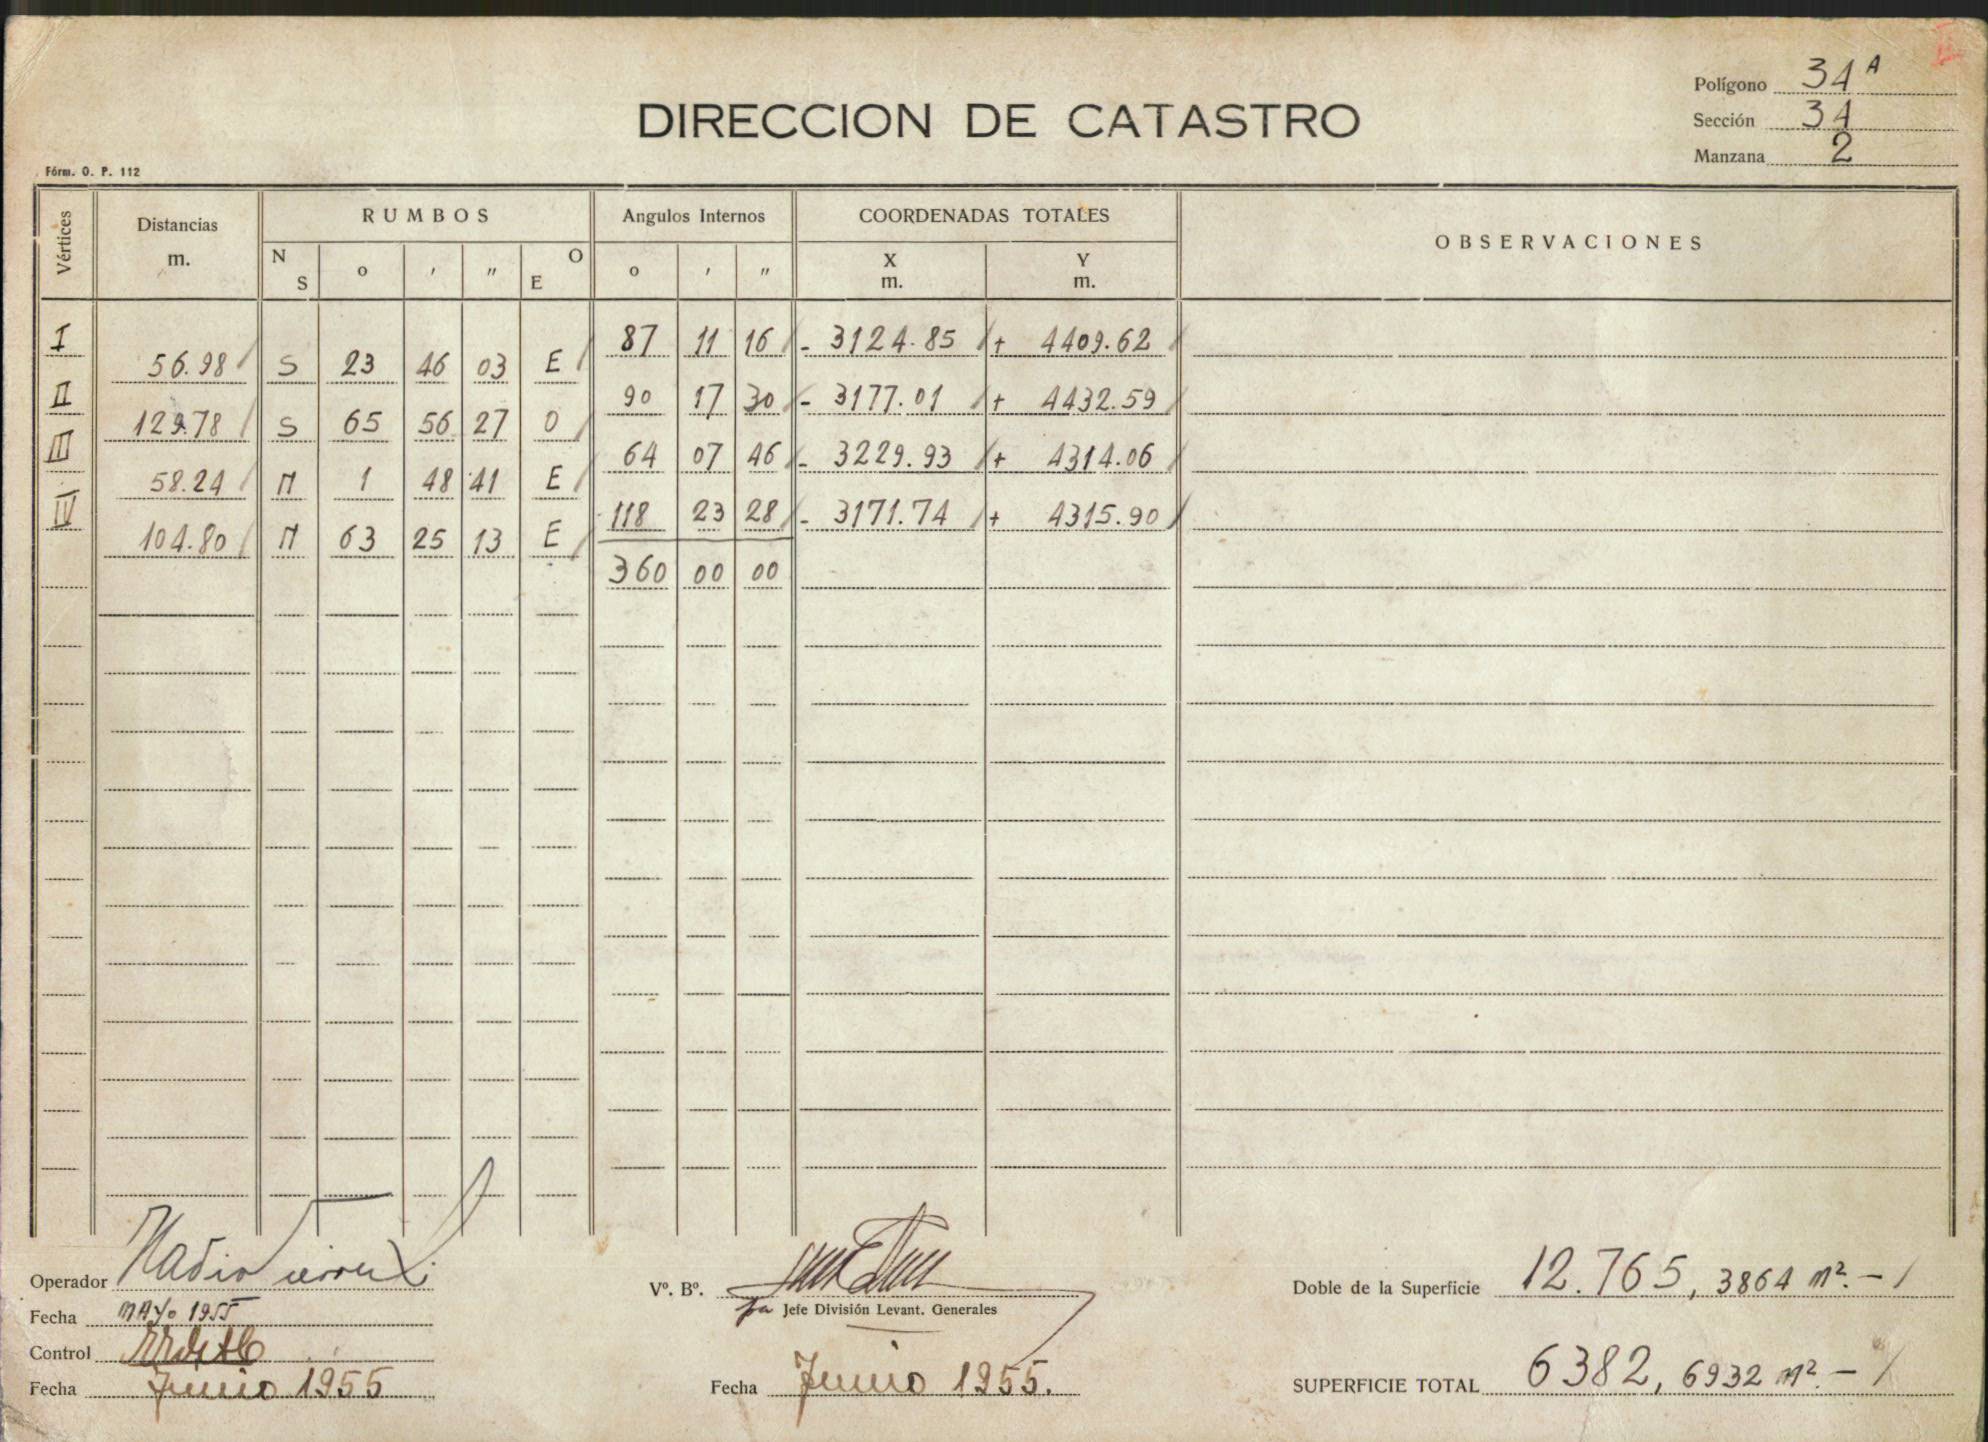 Polígono 34 A
DIRECCION DE CATASTRO
Sección 34
Manzana 2
Fórm. O. P. 112
Vértices Distancias m. RUMBOS Angulos Internos COORDENADAS TOTALES OBSERVACIONES
N S o ' " O E o ' " X m. Y m.
I 87 11 16 - 3124.85 + 4409.62
56.98 S 23 46 03 E
II 90 17 30 - 3177.01 + 4432.59
129.78 S 65 56 27 O
III 64 07 46 - 3229.93 + 4314.06
58.24 N 1 48 41 E
IV 118 23 28 - 3171.74 + 4315.90
104.80 N 63 25 13 E
360 00 00
Operador
Vº. Bº.
Doble de la Superficie 12.765,3864 m². -
Fecha MAYO 1955
pa Jefe División Levant. Generales
Control
Fecha Junio 1955
Fecha Junio 1955.
SUPERFICIE TOTAL 6382,6932 m². -